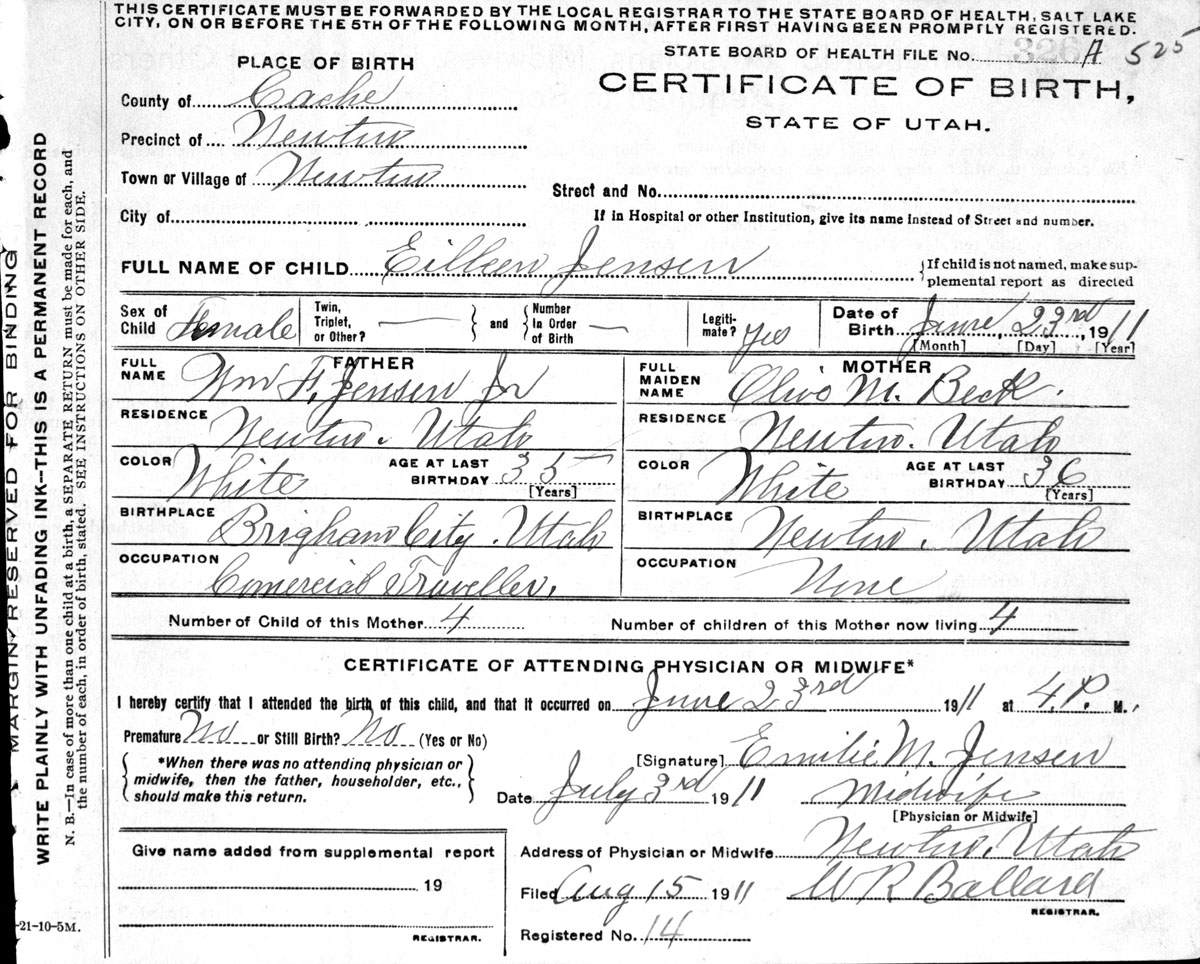 THIS CERTIFICATE MUST BE FORWARDED BY THE LOCAL REGISTRAR TO THE STATE BOARD OF HEALTH, SALT LAKE
CITY, ON OR BEFORE THE 5TH OF THE FOLLOWING MONTH, AFTER FIRST HAVING BEEN PROMPTLY REGISTERED.
STATE BOARD OF HEALTH FILE No. 326 A 525
PLACE OF BIRTH
CERTIFICATE OF BIRTH,
STATE OF UTAH.
County of Cache
Precinct of Newton
Town or Village of Newton
Street and No.
City of
If in Hospital or other Institution, give its name instead of Street and number.
FULL NAME OF CHILD Eilleen Jensen
{If child is not named, make sup-
plemental report as directed
Sex of Child Female
Twin, Triplet, or Other? —
and
Number In Order of Birth —
Legiti-mate? Yes
Date of Birth June 23rd, 1911
[Month] [Day] [Year]
FATHER
FULL NAME Wm F. Jensen Jr
RESIDENCE Newton. Utah
COLOR White
AGE AT LAST BIRTHDAY 35
[Years]
BIRTHPLACE Brigham City. Utah
OCCUPATION Comercial Traveller.
MOTHER
FULL MAIDEN NAME M. Beck.
RESIDENCE Newton. Utah
COLOR White
AGE AT LAST BIRTHDAY 36
[Years]
BIRTHPLACE Newton. Utah
OCCUPATION None
Number of Child of this Mother 4
Number of children of this Mother now living 4
CERTIFICATE OF ATTENDING PHYSICIAN OR MIDWIFE*
I hereby certify that I attended the birth of this child, and that it occurred on June 23rd 1911 at 4.P. M.,
Premature No or Still Birth? No (Yes or No)
{*When there was no attending physician or
midwife, then the father, householder, etc.,
should make this return.}
[Signature] Emilie M. Jensen
Date July 3rd 1911
Midwife
[Physician or Midwife]
Give name added from supplemental report
19
REGISTRAR.
Address of Physician or Midwife Newton. Utah
Filed Aug 15 1911 W R Ballard
REGISTRAR.
Registered No. 14
MARGIN RESERVED FOR BINDING
WRITE PLAINLY WITH UNFADING INK—THIS IS A PERMANENT RECORD
N. B.—In case of more than one child at a birth, a SEPARATE RETURN must be made for each, and
the number of each, in order of birth, stated. SEE INSTRUCTIONS ON OTHER SIDE.
-21-10-5M.